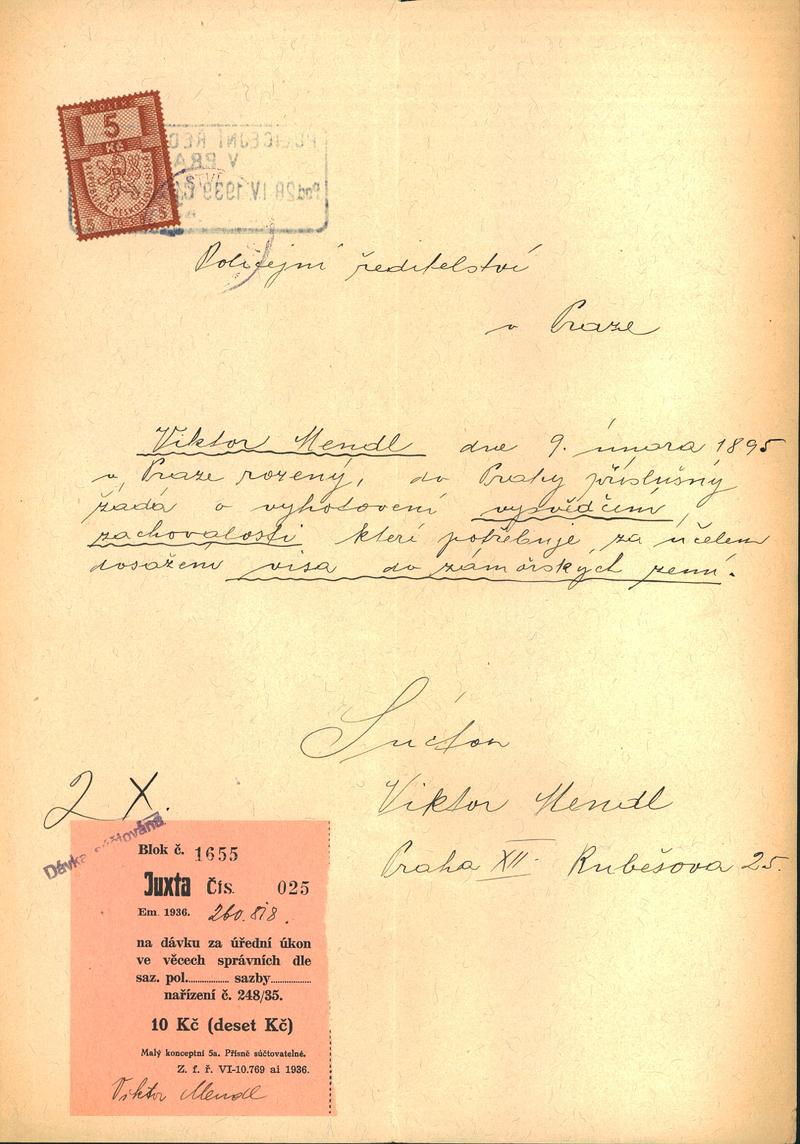 KOLEK
5
Kč
Policejní ředitelství
v Praze
Viktor Mendl dne 9. února 1895
v Praze rozený, do Prahy příslušný
žádá o vyhotovení vysvědčení
zachovalosti které potřebuje za účelem
dosažení visa do zámořských zemí.
Viktor Mendl
Praha XII. Rubešova 25.
2 X.
Dávka súčtována
Blok č. 1655
Juxta Čís. 025
Em. 1936. 260.818.
na dávku za úřední úkon
ve věcech správních dle
saz. pol............ sazby............
nařízení č. 248/35.
10 Kč (deset Kč)
Malý konceptní 5a. Přísně súčtovatelné.
Z. f. ř. VI-10.769 ai 1936.
Viktor Mendl